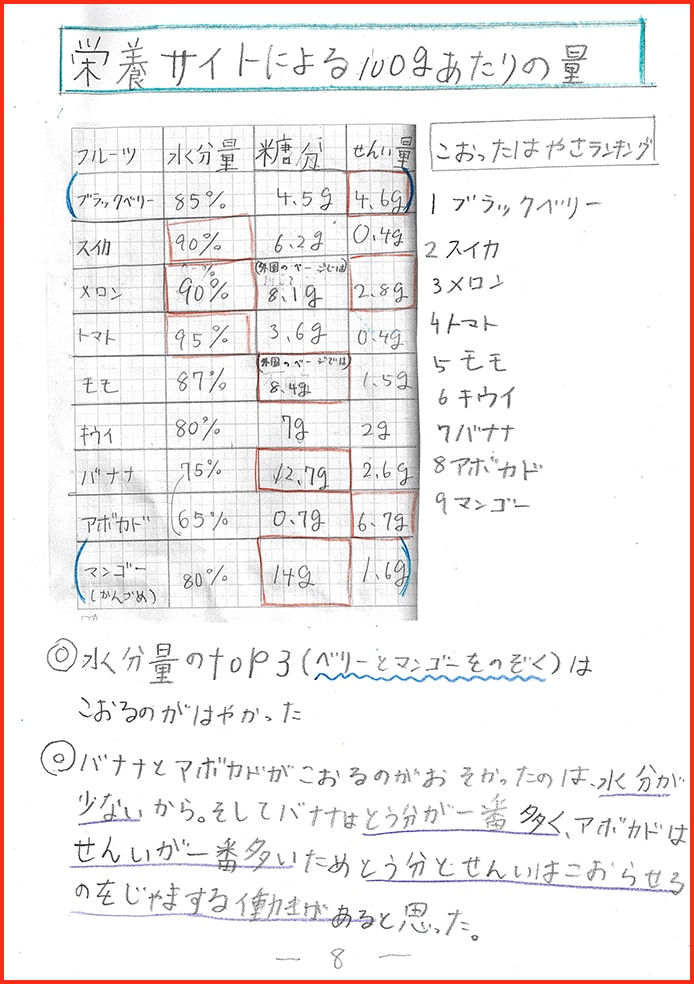 栄養サイトによる100gあたりの量
フルーツ 水分量 糖分 せんい量
ブラックベリー 85% 4.5g 4.6g
スイカ 90% 6.2g 0.4g
メロン 90% (外国のページでは) 8.1g 2.8g
トマト 95% 3.6g 0.4g
モモ 87% (外国のページでは) 8.4g 1.5g
キウイ 80% 7g 2g
バナナ 75% 12.7g 2.6g
アボカド 65% 0.7g 6.7g
マンゴー (かんづめ) 80% 14g 1.6g
こおったはやさランキング
1 ブラックベリー
2 スイカ
3 メロン
4 トマト
5 モモ
6 キウイ
7 バナナ
8 アボカド
9 マンゴー
◎水分量のtop3(ベリーとマンゴーをのぞく)は
こおるのがはやかった
◎バナナとアボカドがこおるのがおそかったのは、水分が
少ないから。そしてバナナはとう分が一番多く、アボカドは
せんいが一番多いためとう分とせんいはこおらせる
のをじゃまする働きがあると思った。
— 8 —